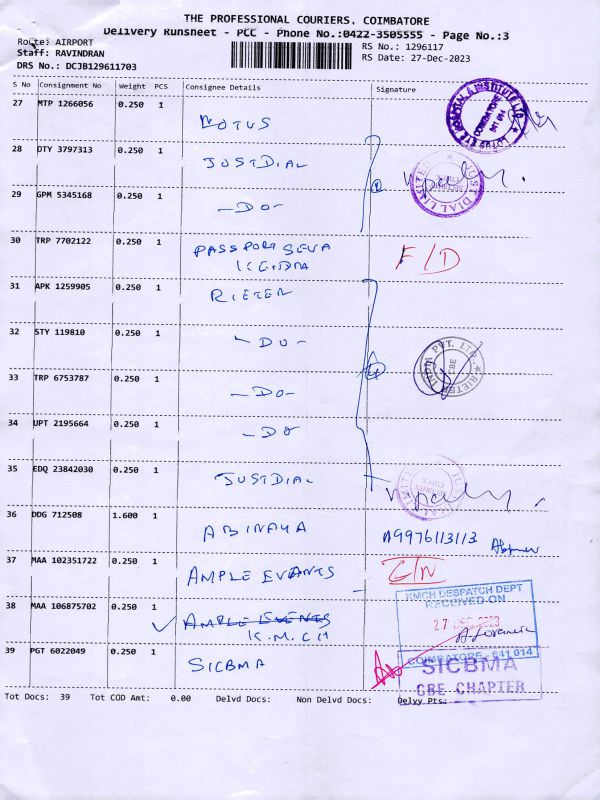 THE PROFESSIONAL COURIERS, COIMBATORE
Delivery Runsheet - PCC - Phone No.:0422-3505555 - Page No.:3
Route: AIRPORT
Staff: RAVINDRAN
DRS No.: DCJB129611703
RS No.: 1296117
RS Date: 27-Dec-2023
S No Consignment No Weight PCS Consignee Details Signature
27 MTP 1266056 0.250 1
LOTUS
LOTUS EYE HOSPITAL & INSTITUTE LTD
COIMBATORE
641 014
28 DTY 3797313 0.250 1
JUSTDIAL
JUST DIAL LIMITED
29 GPM 5345168 0.250 1
-DO-
30 TRP 7702122 0.250 1
PASSPORT SEVA
KENDRA
F/D
31 APK 1259905 0.250 1
RIETER
32 STY 119810 0.250 1
-DO-
RIETER INDIA PVT. LTD.
CBE
33 TRP 6753787 0.250 1
-DO-
34 UPT 2195664 0.250 1
-DO
35 EDQ 23842030 0.250 1
JUSTDIAL
36 DDG 712508 1.600 1
ABINAYA
A9976113113
37 MAA 102351722 0.250 1
AMPLE EVANTS
38 MAA 106875702 0.250 1
AMPLE EVENTS
K.M.C.H
KMCH DESPATCH DEPT
RECEIVED ON
27 DEC 2023
COIMBATORE - 641 014
39 PGT 6022049 0.250 1
SICBMA
SICBMA
CBE CHAPTER
Tot Docs: 39 Tot COD Amt: 0.00 Delvd Docs: Non Delvd Docs: Delvy Pts: